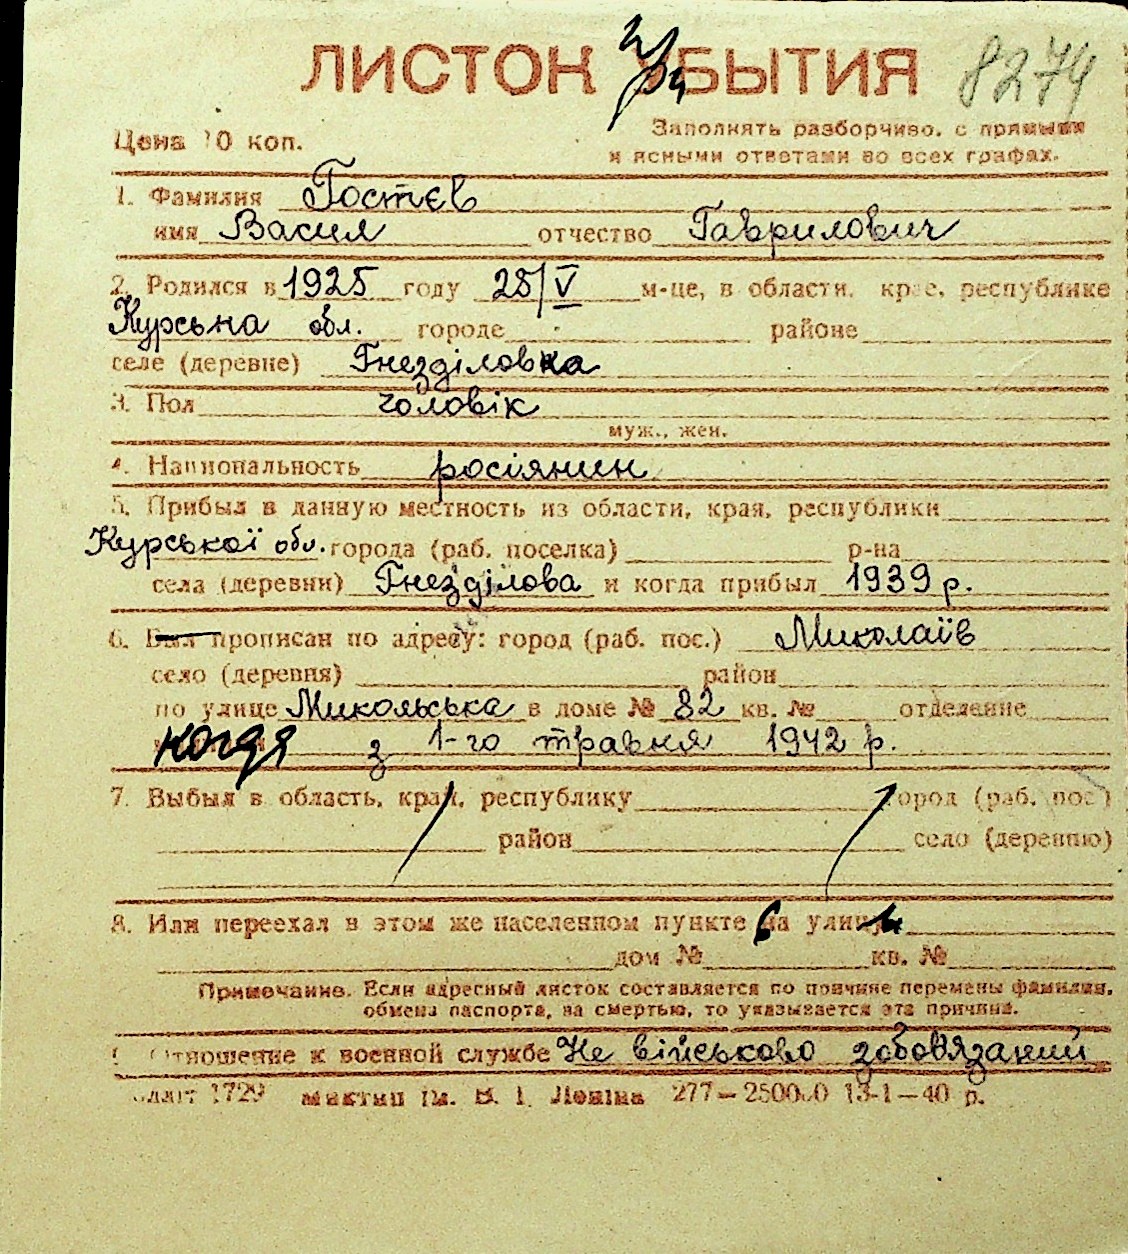 ЛИСТОК УБЫТИЯ 8274
Цена 10 коп.
Заполнять разборчиво, с прямыми
и ясными ответами во всех графах.
1. Фамилия Гостєв
имя Васил отчество Гаврилович
2. Родился в 1925 году 25/V м-це, в области, крае, республике
Курська обл. городе районе
селе (деревне) Гнезділовка
3. Пол чоловік
муж., жен.
4. Национальность росіянин
5. Прибыл в данную местность из области, края, республики
Курської обл. города (раб. поселка) р-на
села (деревни) Гнезділова и когда прибыл 1939 р.
6. Был прописан по адресу: город (раб. пос.) Миколаїв
село (деревня) район
по улице Микольська в доме № 82 кв. № отделение
когда з 1-го травня 1942 р.
7. Выбыл в область, край, республику город (раб. пос)
район село (деревню)
8. Или переехал в этом же населенном пункте на улицу
дом № кв. №
Примечание. Если адресный листок составляется по причине перемены фамилии,
обмена паспорта, на смертью, то указывается эта причина.
9. Отношение к военной службе Не військово зобов'язаний
1729 ім. В. І. Леніна 277—250000 13-1—40 р.